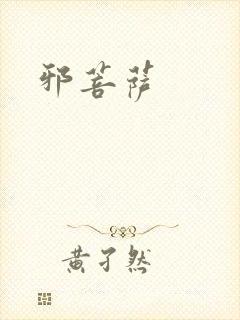 邪菩萨
黄孑然